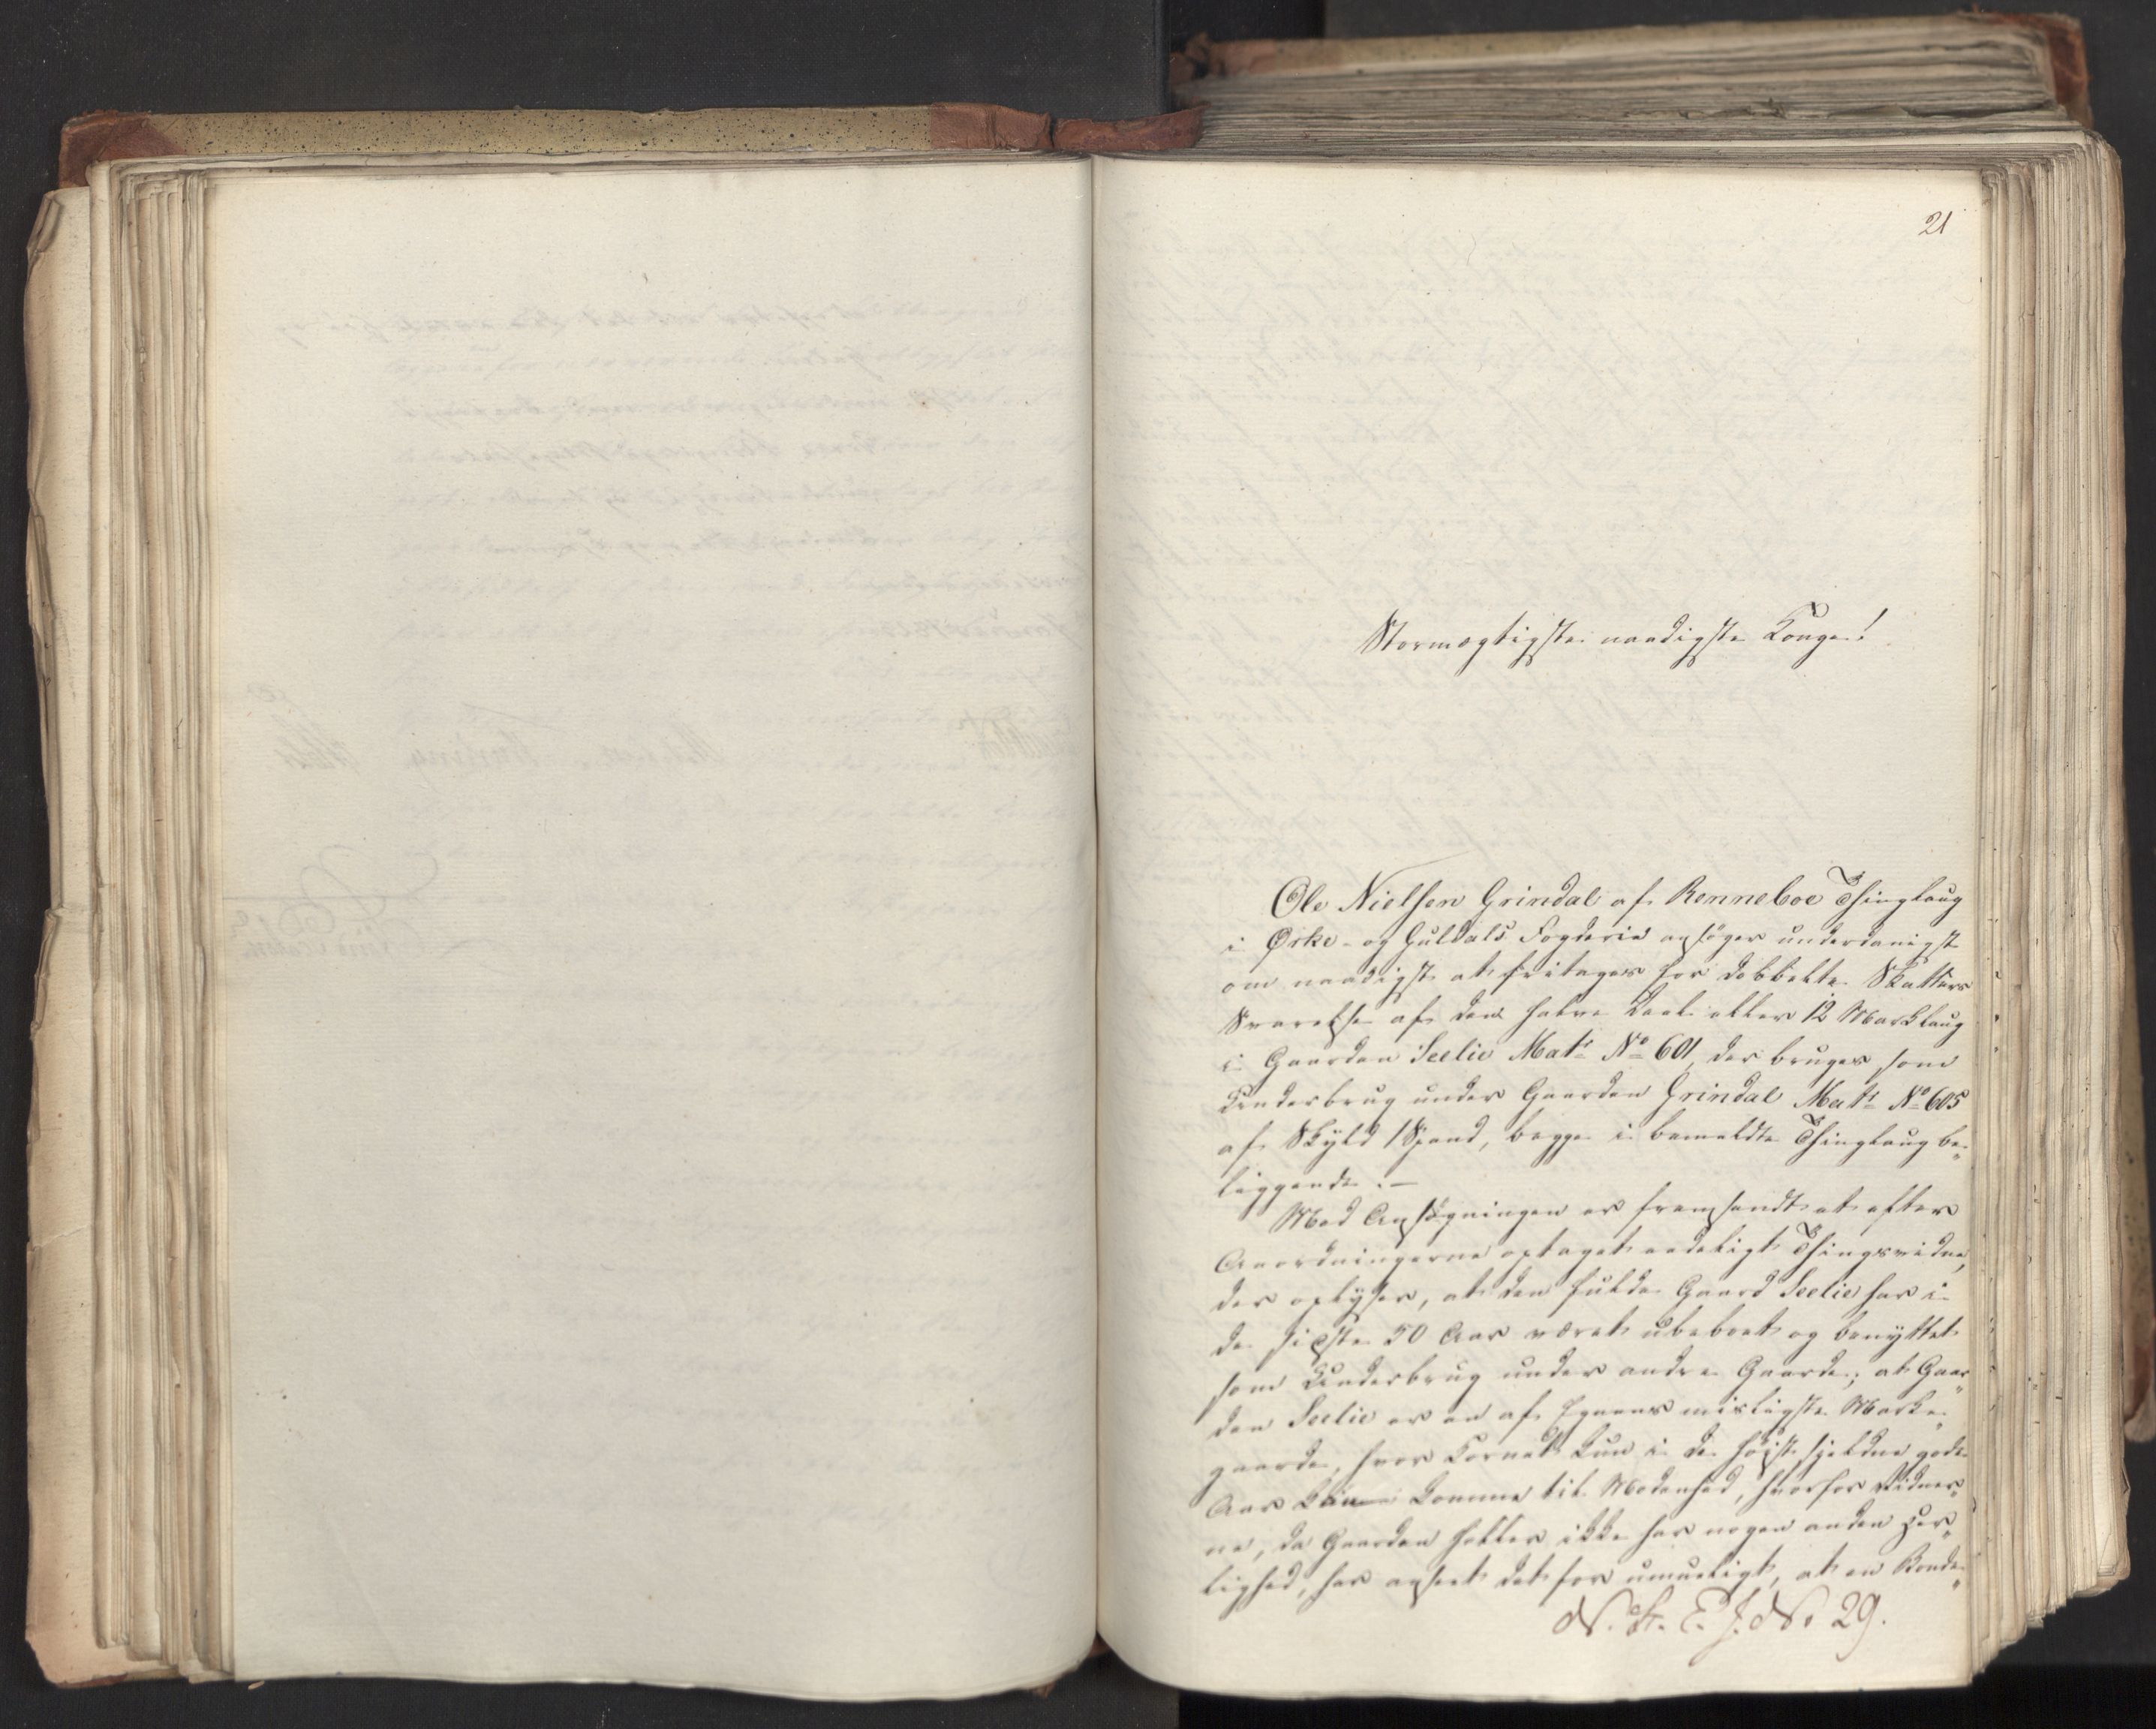 21
Stormægtigste naadigste Konge!
Ole Nielsen Grindal af Renneboe Thinglaug
i Ørke- og Guldals Fogderie ansøger underdanigst
om naadigst at fritages for dobbelte Skatters
Svarelse af den halve Deel eller 12 Marklaug
i Gaarden Seelie Matr No 601, der bruges som
Underbrug under Gaarden Grindal Matr No 605
af Skyld 1 Spand, begge i bemeldte Thinglaug be„
liggende.—
Med Ansøgningen er fremsendt et efter
Anordningerne optaget eedeligt Thingsvidne,
der oplyser, at den fulde Gaard Seelie har i
de sidste 50 Aar været ubeboet og benyttet
som Underbrug under andre Gaarde; at Gaar„
den Seelie er en af Egnens misligste Marke„
gaarde, hvor Kornet kun i de høist sjeldne gode
Aar kan komme til Modenhed, hvorfor Vidner„
ne, da Gaarden heller ikke har nogen anden Her„
lighed, har anseet det for umueligt, at en Bonde„
N. St. E. J. No 29.